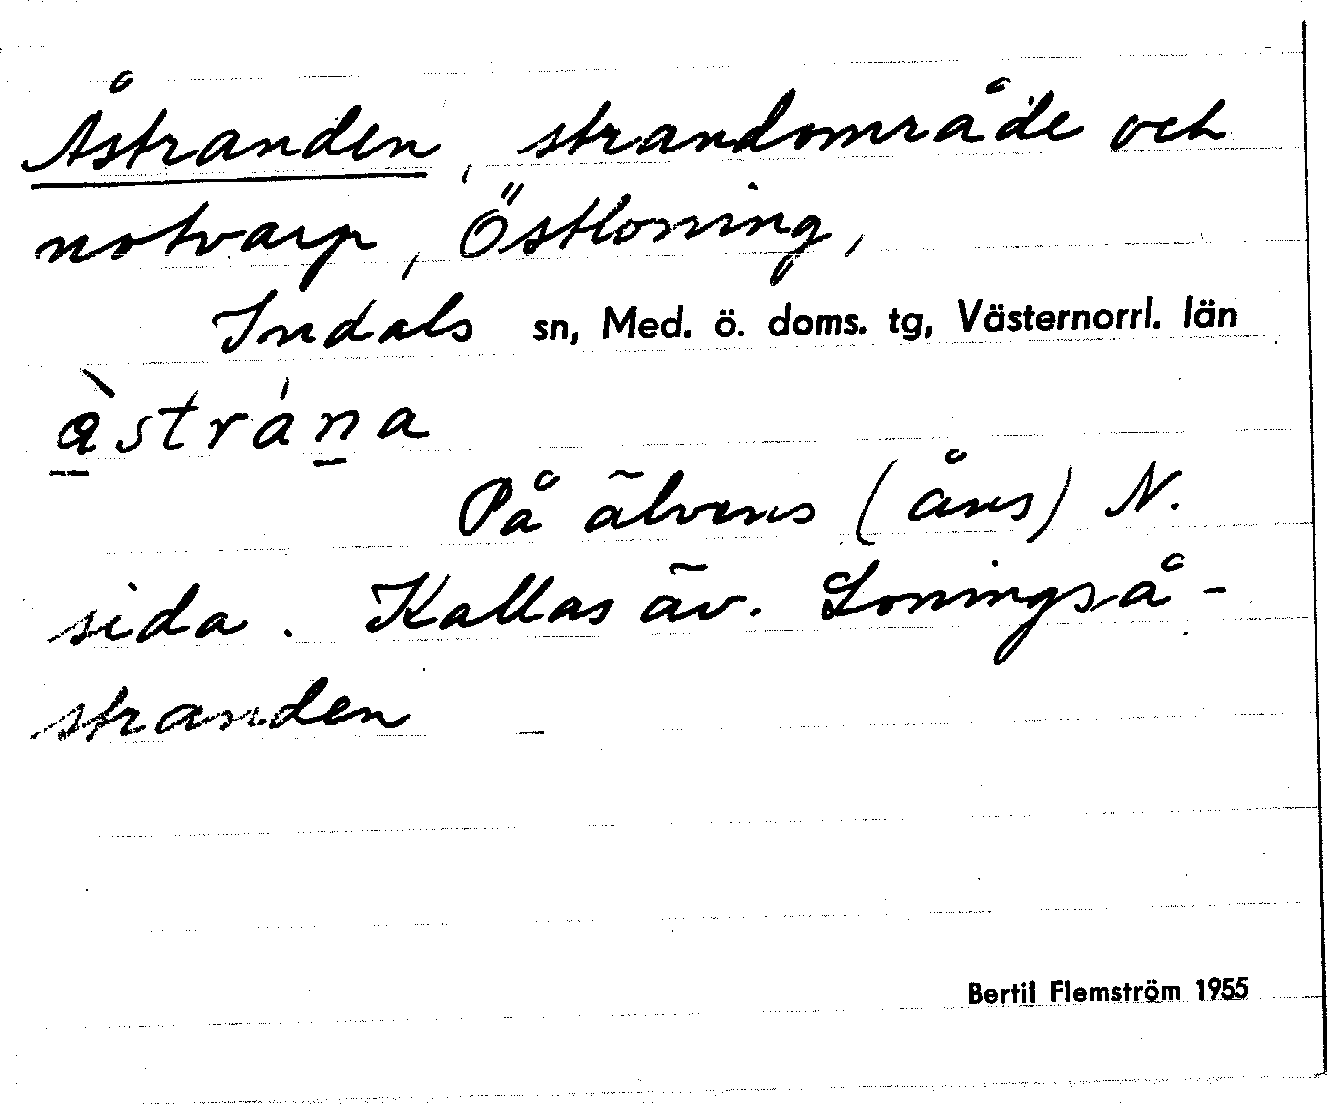 Åstranden, strandområde och
notvarp, Östloning,
Indals sn, Med. ö. doms. tg, Västernorrl. län
På älvens (åns) N.
sida. Kallas äv. Loningså-
stranden
Bertil Flemström 1955